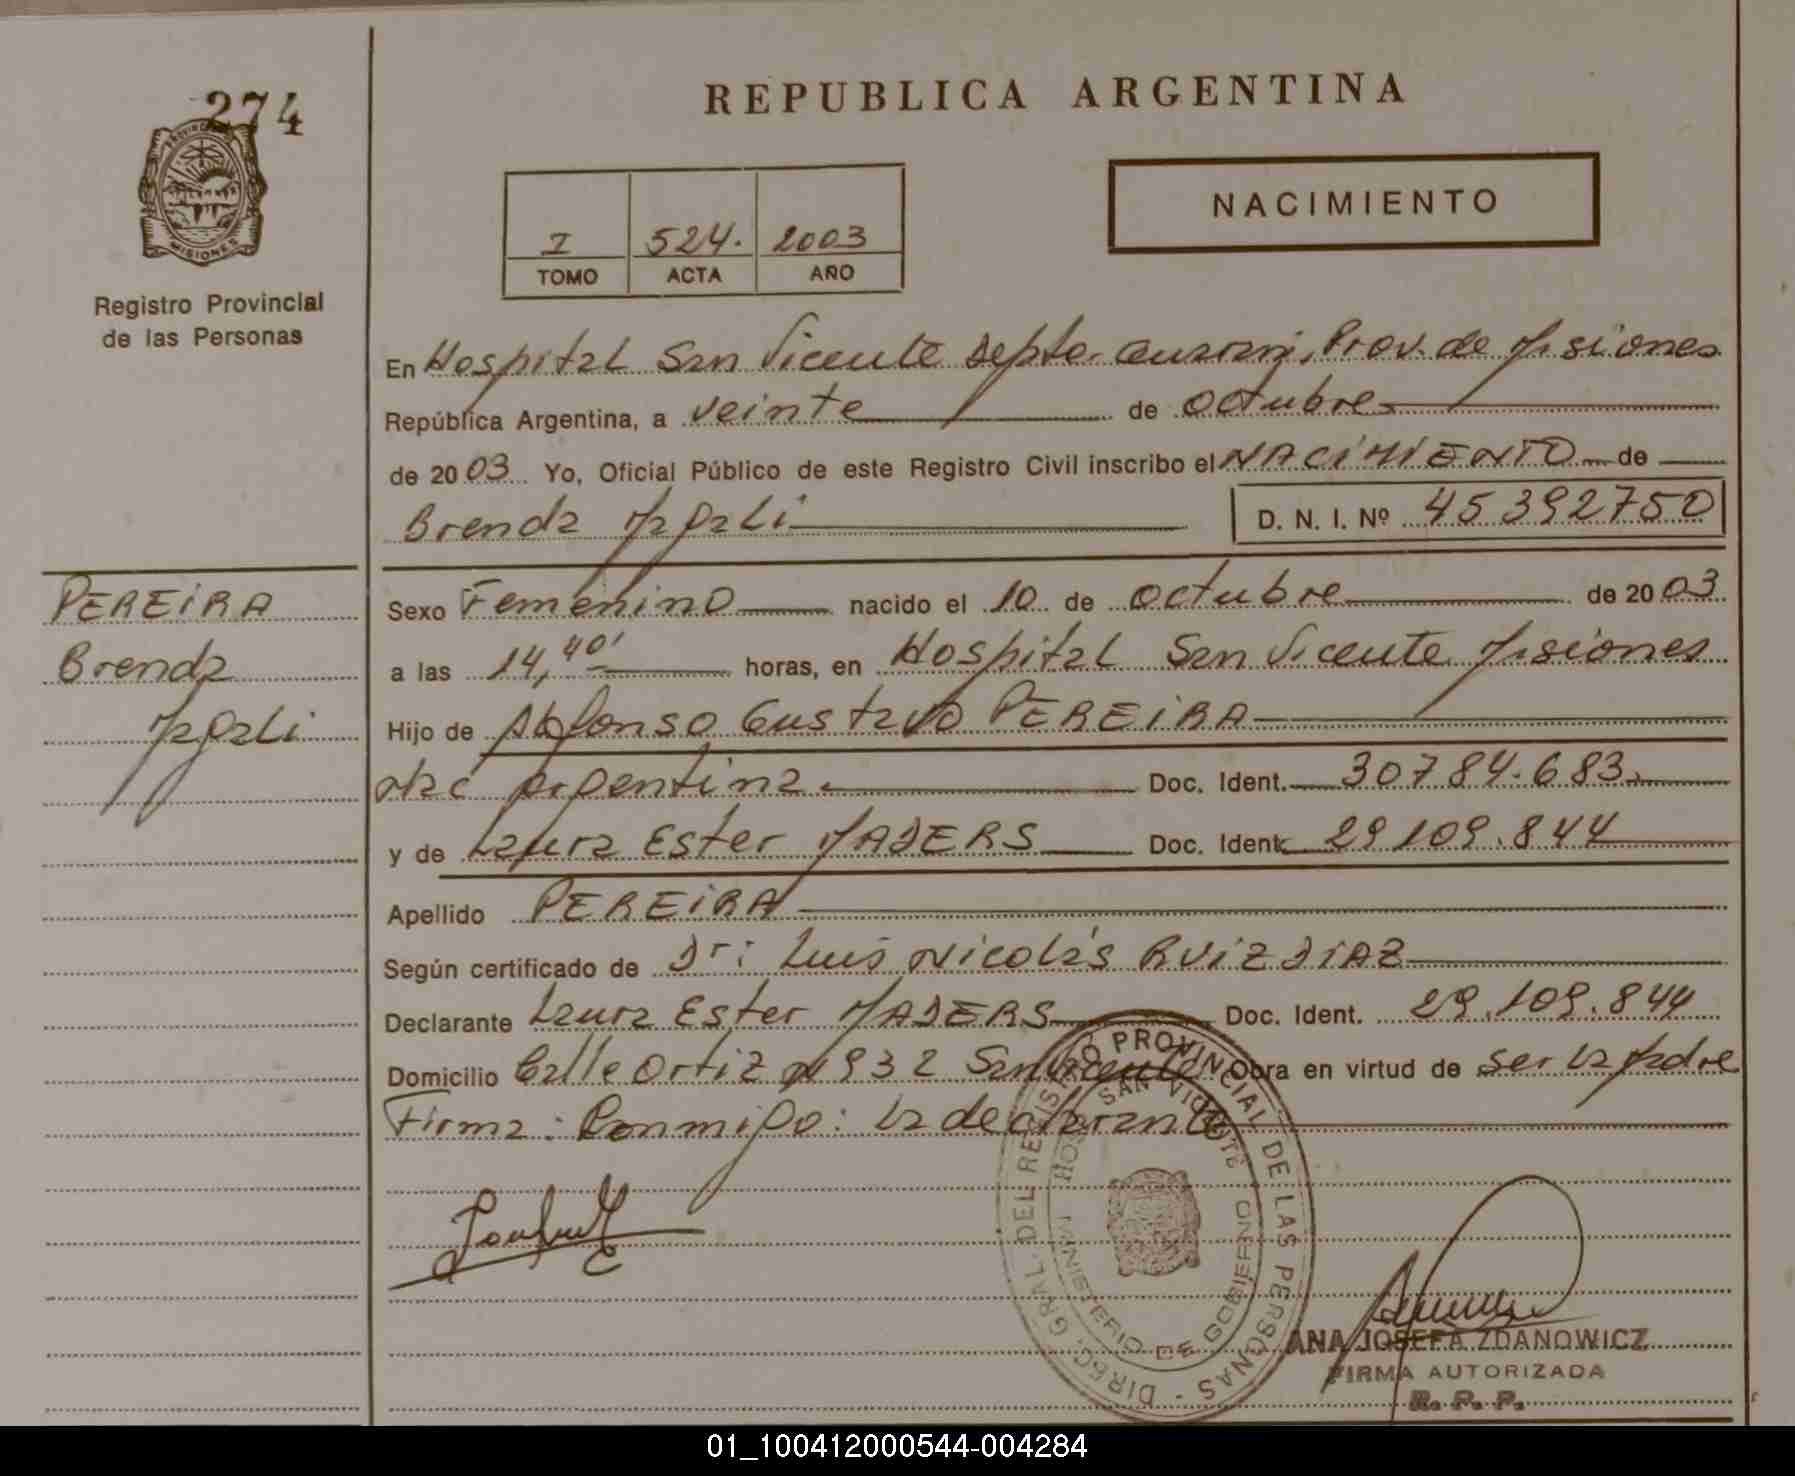 274
PROVINCIA
MISIONES
Registro Provincial
de las Personas
REPUBLICA ARGENTINA
I 524. 2003
TOMO ACTA AÑO
NACIMIENTO
En Hospital San Vicente Depto. Guarani, Prov. de Misiones
República Argentina, a veinte de octubre
de 2003 Yo, Oficial Público de este Registro Civil inscribo el NACIMIENTO de
Brenda Magali D. N. I. Nº 45392750
PEREIRA
Brenda
Magali
Sexo Femenino nacido el 10 de octubre de 2003
a las 14,40' horas, en Hospital San Vicente Misiones
Hijo de Alfonso Gustavo PEREIRA
Nac Argentina. Doc. Ident. 30784.683
y de Laura Ester MADERS Doc. Ident. 29109.844
Apellido PEREIRA
Según certificado de Dr: Luis Nicolás RUIZ DIAZ
Declarante Laura Ester MADERS Doc. Ident. 29.109.844
Domicilio Calle Ortiz Nº 932 San Vicente Obra en virtud de ser la Madre
Firma: Conmigo: La declarante
DIREC. GRAL. DEL REGISTRO PROVINCIAL DE LAS PERSONAS -
HOSP. SAN VICENTE
MINISTERIO DE GOBIERNO
ANA JOSEFA ZDANOWICZ
FIRMA AUTORIZADA
R. P. P.
01_100412000544-004284